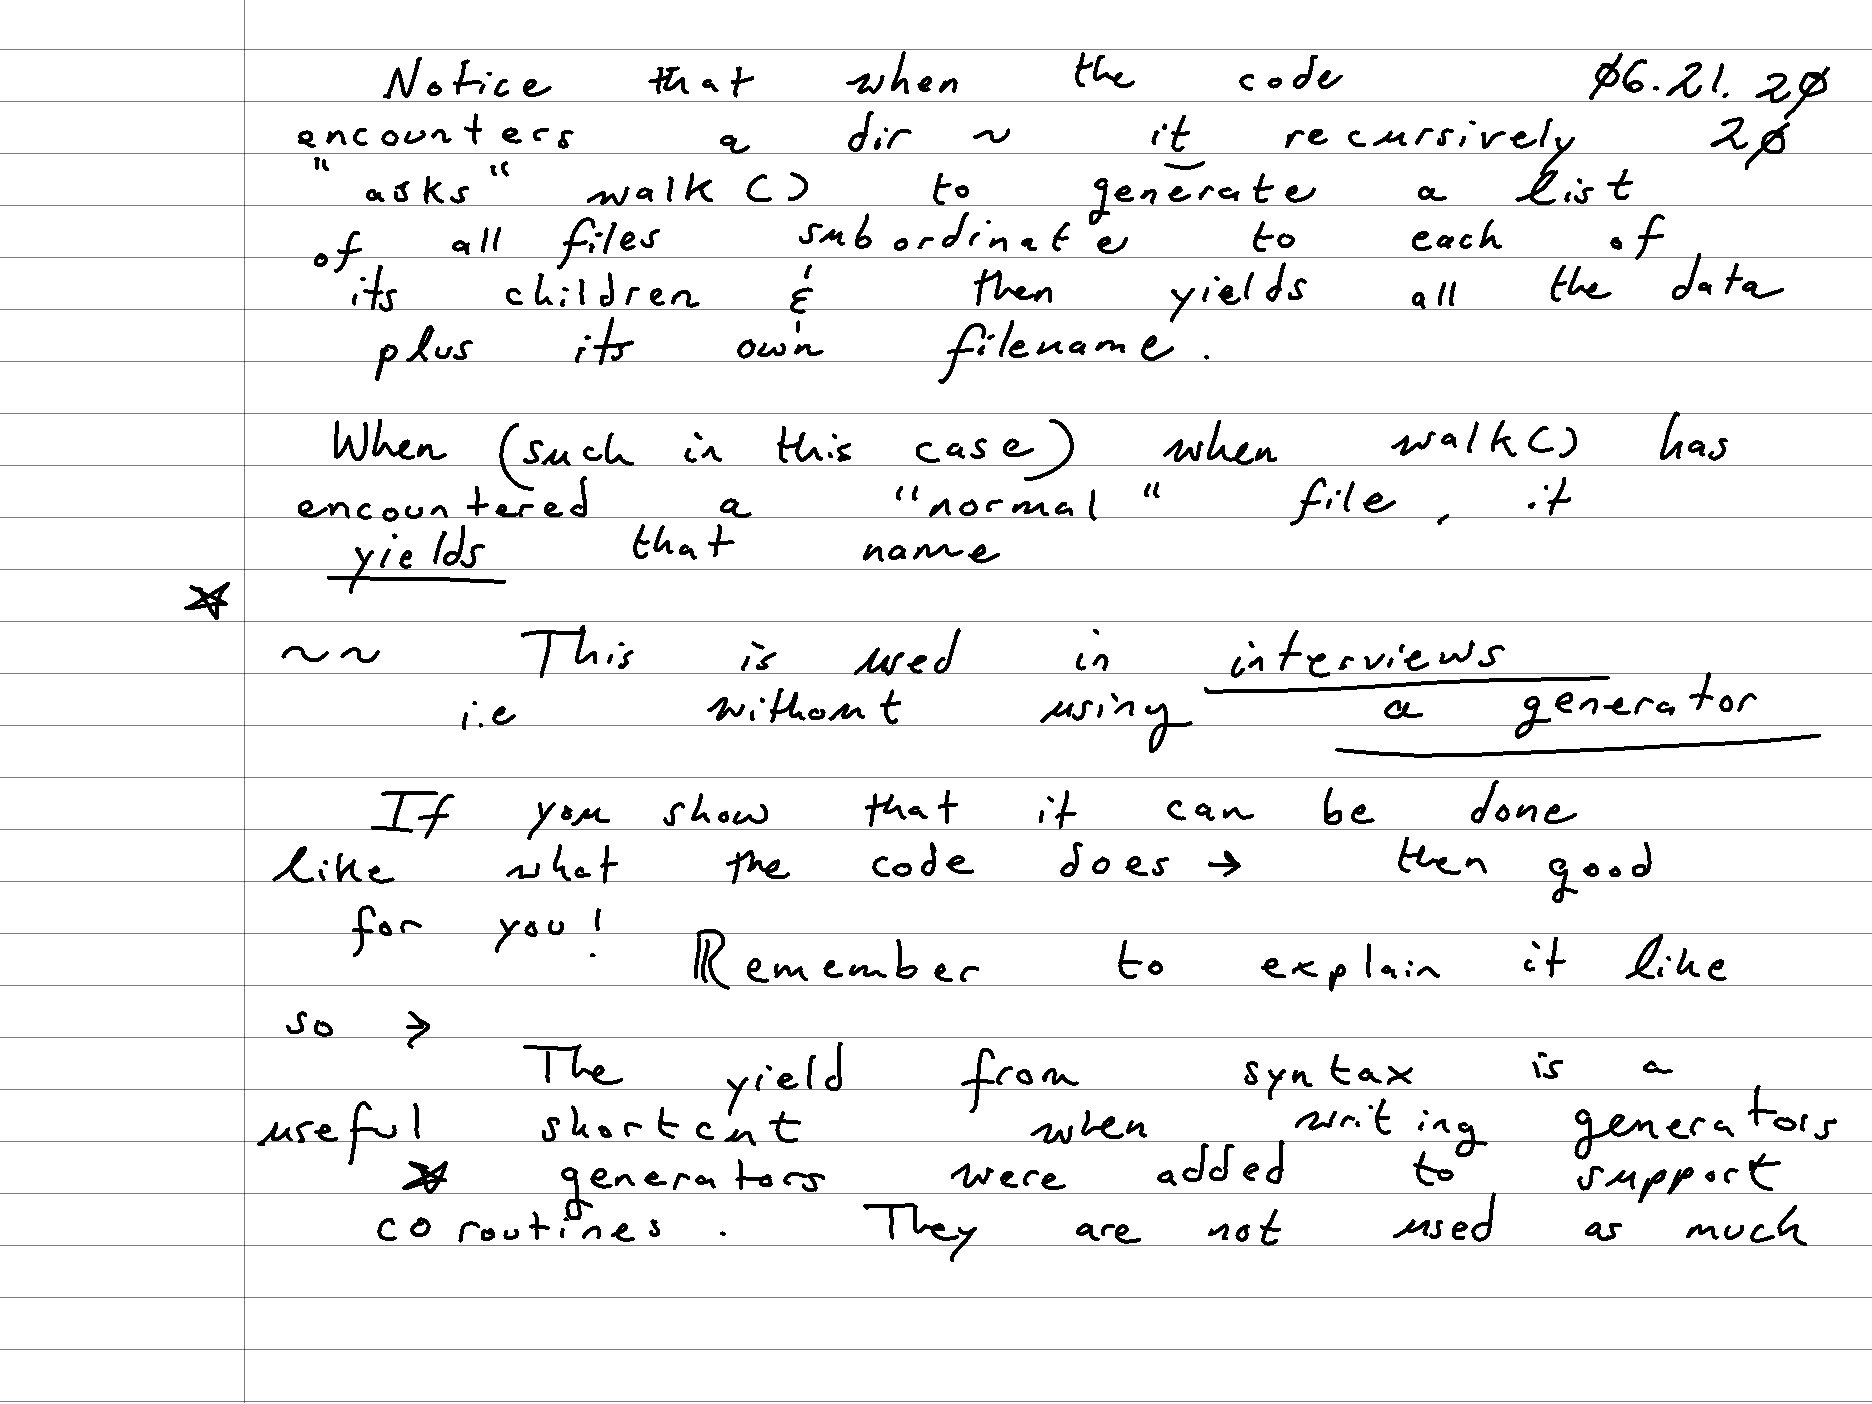 Notice that when the code 06.21.20
encounters a dir ~ it recursively 20
"asks" walk() to generate a list
of all files subordinate to each of
its children & then yields all the data
plus its own filename.
When (such in this case) when walk() has
encountered a "normal" file, it
yields that name
~~ This is used in interviews
i.e without using a generator
If you show that it can be done
like what the code does → then good
for you!
Remember to explain it like
so →
The yield from syntax is a
useful shortcut when writing generators
generators were added to support
coroutines. They are not used as much